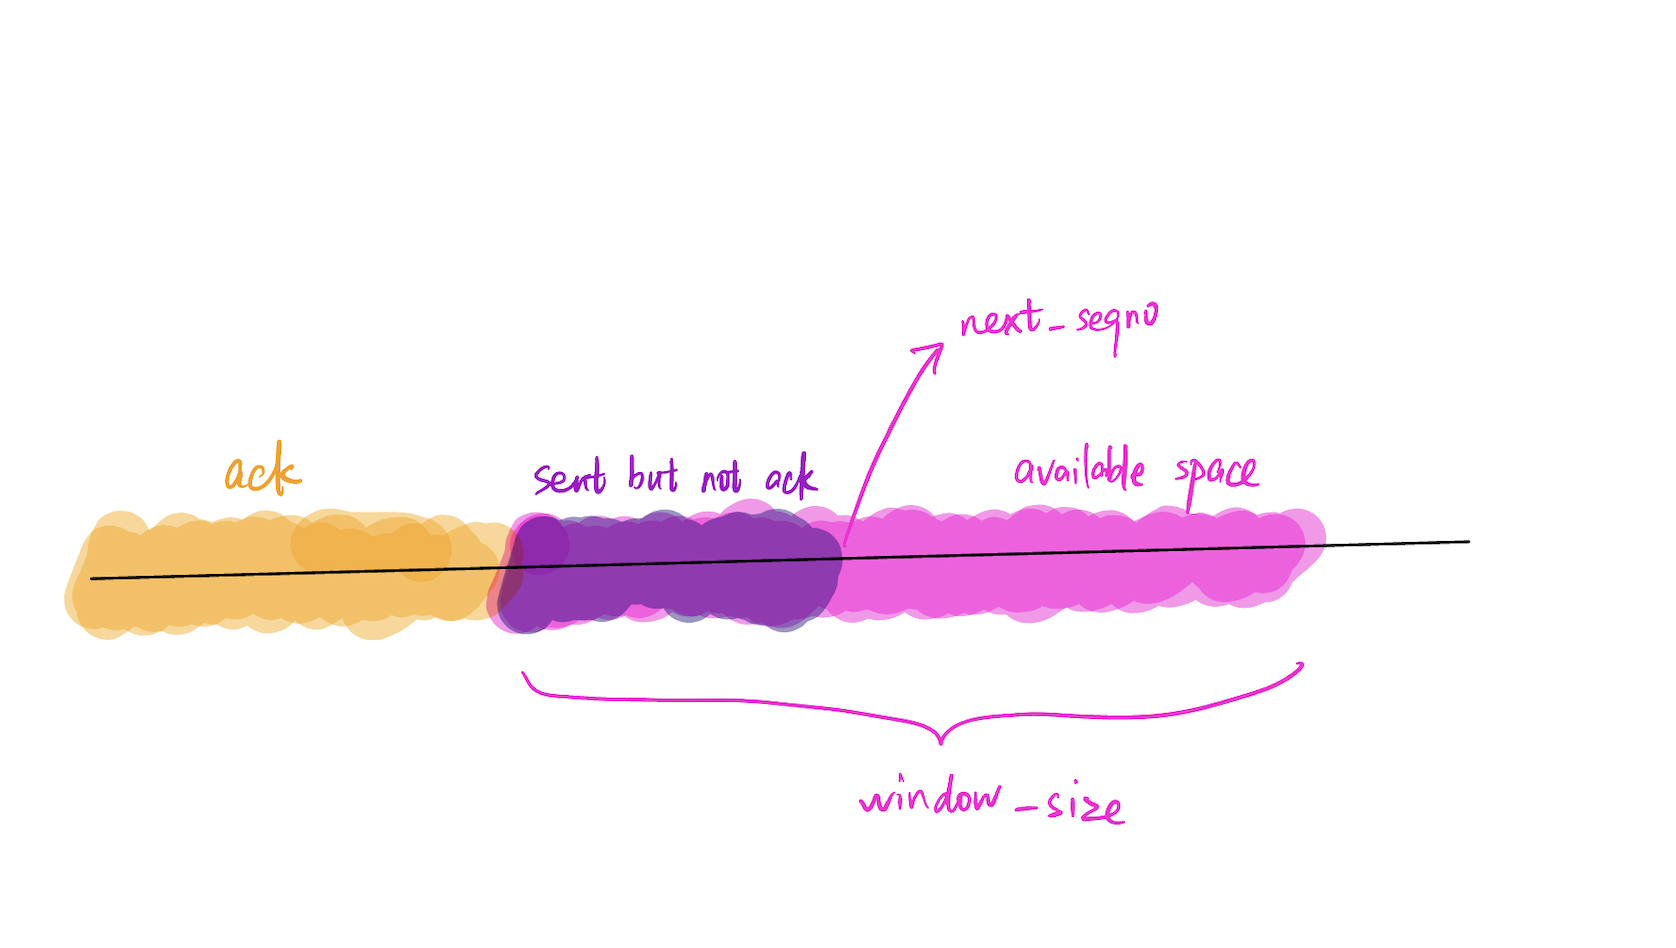 next_seqno
ack
sent but not ack
available space
window_size